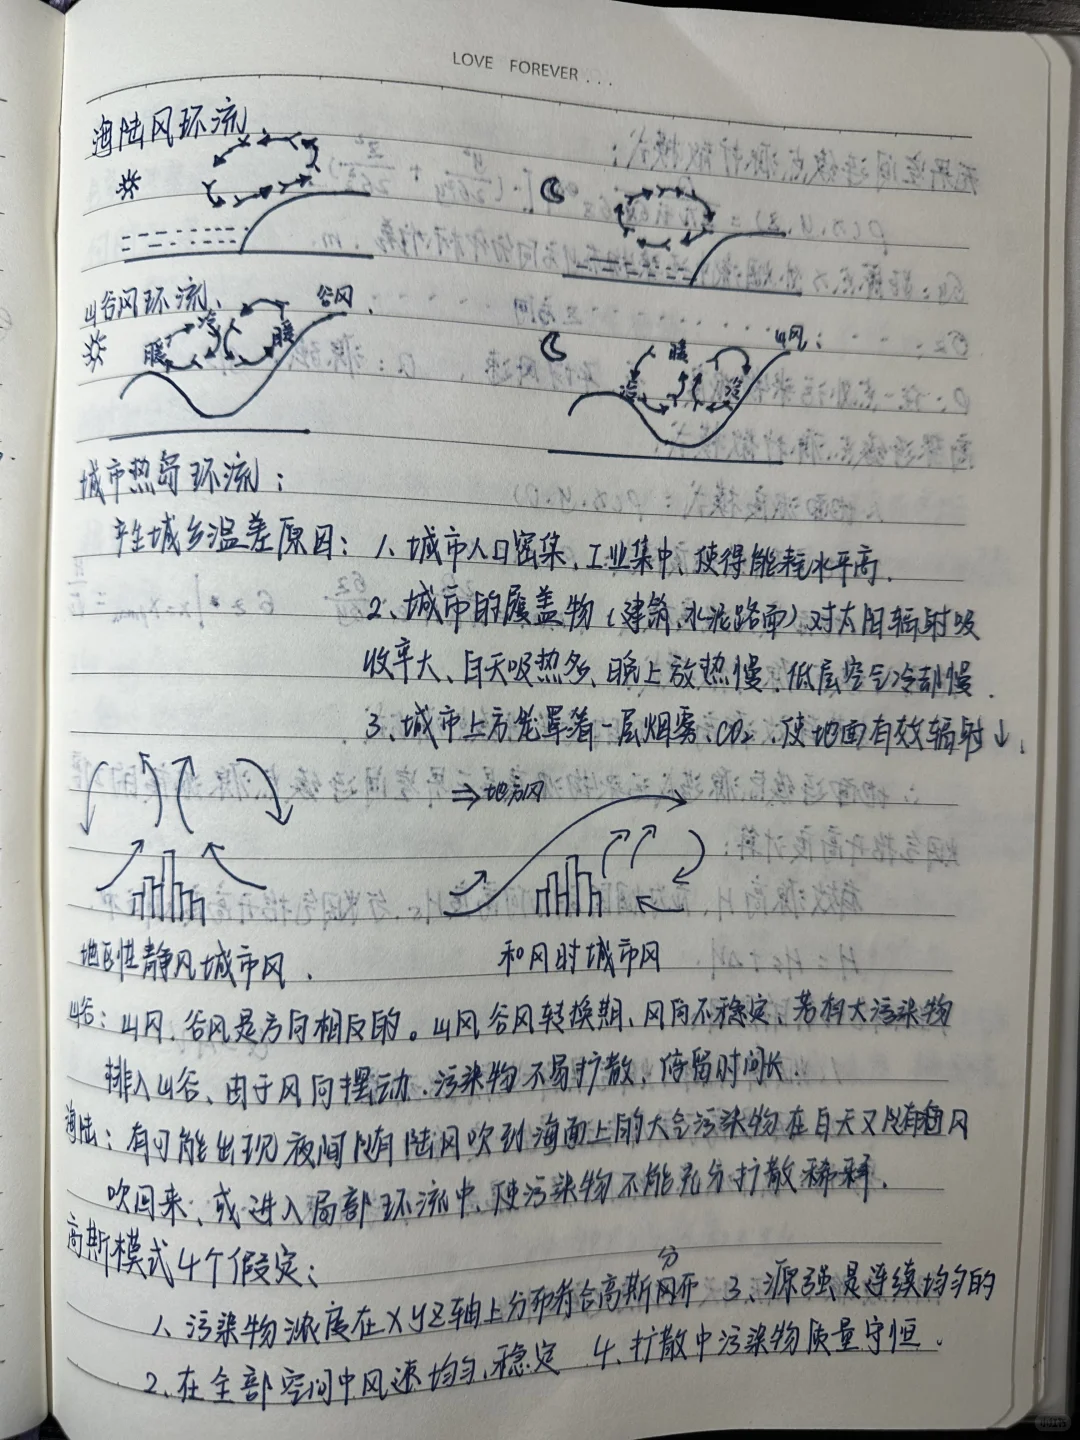 LOVE FOREVER...
海陆风环流
山谷风环流、 谷风
冷
暖 暖
山风
暖
冷 冷
城市热岛环流：
产生城乡温差原因：1、城市人口密集、工业集中、使得能耗水平高.
2、城市的覆盖物(建筑、水泥路面)对太阳辐射吸
收率大、白天吸热多、晚上放热慢.低层空气冷却慢.
3、城市上方笼罩着一层烟雾、CO₂、使地面有效辐射↓.
⇒地方风
地区性静风城市风. 和风时城市风
山谷：山风、谷风是方向相反的。山风、谷风转换期、风向不稳定、若有大污染物
排入山谷、由于风向摆动.污染物不易扩散、停留时间长.
海陆：有可能出现夜间随陆风吹到海面上的大气污染物在白天又随海风
吹回来、或进入局部环流中、使污染物不能充分扩散稀释.
高斯模式4个假定：
1、污染物浓度在XYZ轴上分布符合高斯分布 3、源强是连续均匀的
2、在全部空间中风速均匀、稳定 4、扩散中污染物质量守恒.